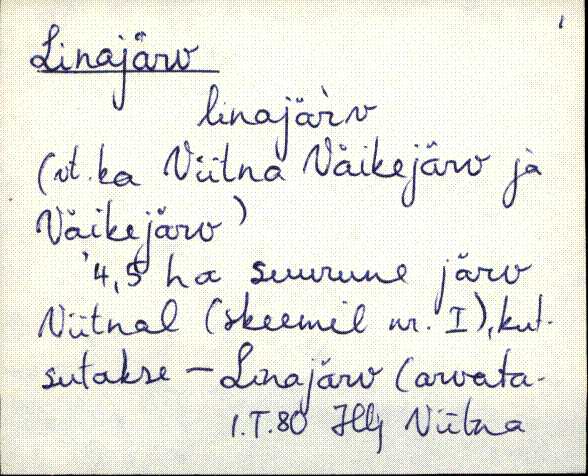 Linajärv
linajär̀v
(vt. ka Viitna Väikejärv ja
Väikejärv)
4,5 ha suurune järv
Viitnal (skeemil nr. I), kut-
sutakse - Linajärv (arvata-
Hlj Viitna